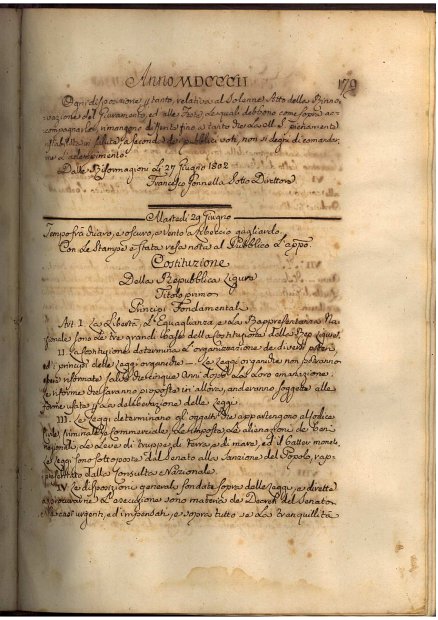 Anno MDCCCII
179
Ogni disposizione pertanto, relativa al Solenne Atto della Rinno-
vazione del Giuramento, ed alle Feste, le quali debbono come sopra ac-
compagnarlo, rimangono fino a tanto che la
a seconda de pubblici voti, non si degni di comandar-
ne l'adempimento.
Dalle Riformagioni li 27 Giugno 1802
Francesco Sotto Direttore
Martedi 29 Giugno
Tempo frà chiaro, e oscuro, e vento gagliardo.
Con le Stampe è stata resa nota al Pubblico l'appo.
Costituzione
Della Repubblica Ligure
Titolo primo
Principj Fondamentali
Art. I. La Libertà, l'Eguaglianza, e la Rappresentanza Na-
zionale sono le tre grandi basi della Costituzione della Repubblica.
II. La Costituzione determina l'organizzazione de diversi poteri
ed i principj delle Leggi organiche. Le Leggi organiche non potranno
esser riformate salvo che cinque Anni dopo la loro emanazione:
le riforme che saranno proposte in allora, anderanno soggette alle
forme usate per la deliberazione delle Leggi.
III. Le Leggi determinano gli oggetti che appartengono al Codice
Civile, Criminale, e Commerciale, le Imposte, le alienazioni de beni
Nazionali, le Leve di truppe di terra, e di mare, ed il batter moneta.
Le Leggi sono sottoposte dal Senato alla Sanzione del Popolo, rap-
presentato dalla Consulta Nazionale.
IV. Le disposizioni generali fondate sopra delle Leggi, e dirette
a procurarne l'esecuzione sono materia de Decreti del Senato.
Ne casi urgenti, ed impensati, e sopra tutto se la tranquillità